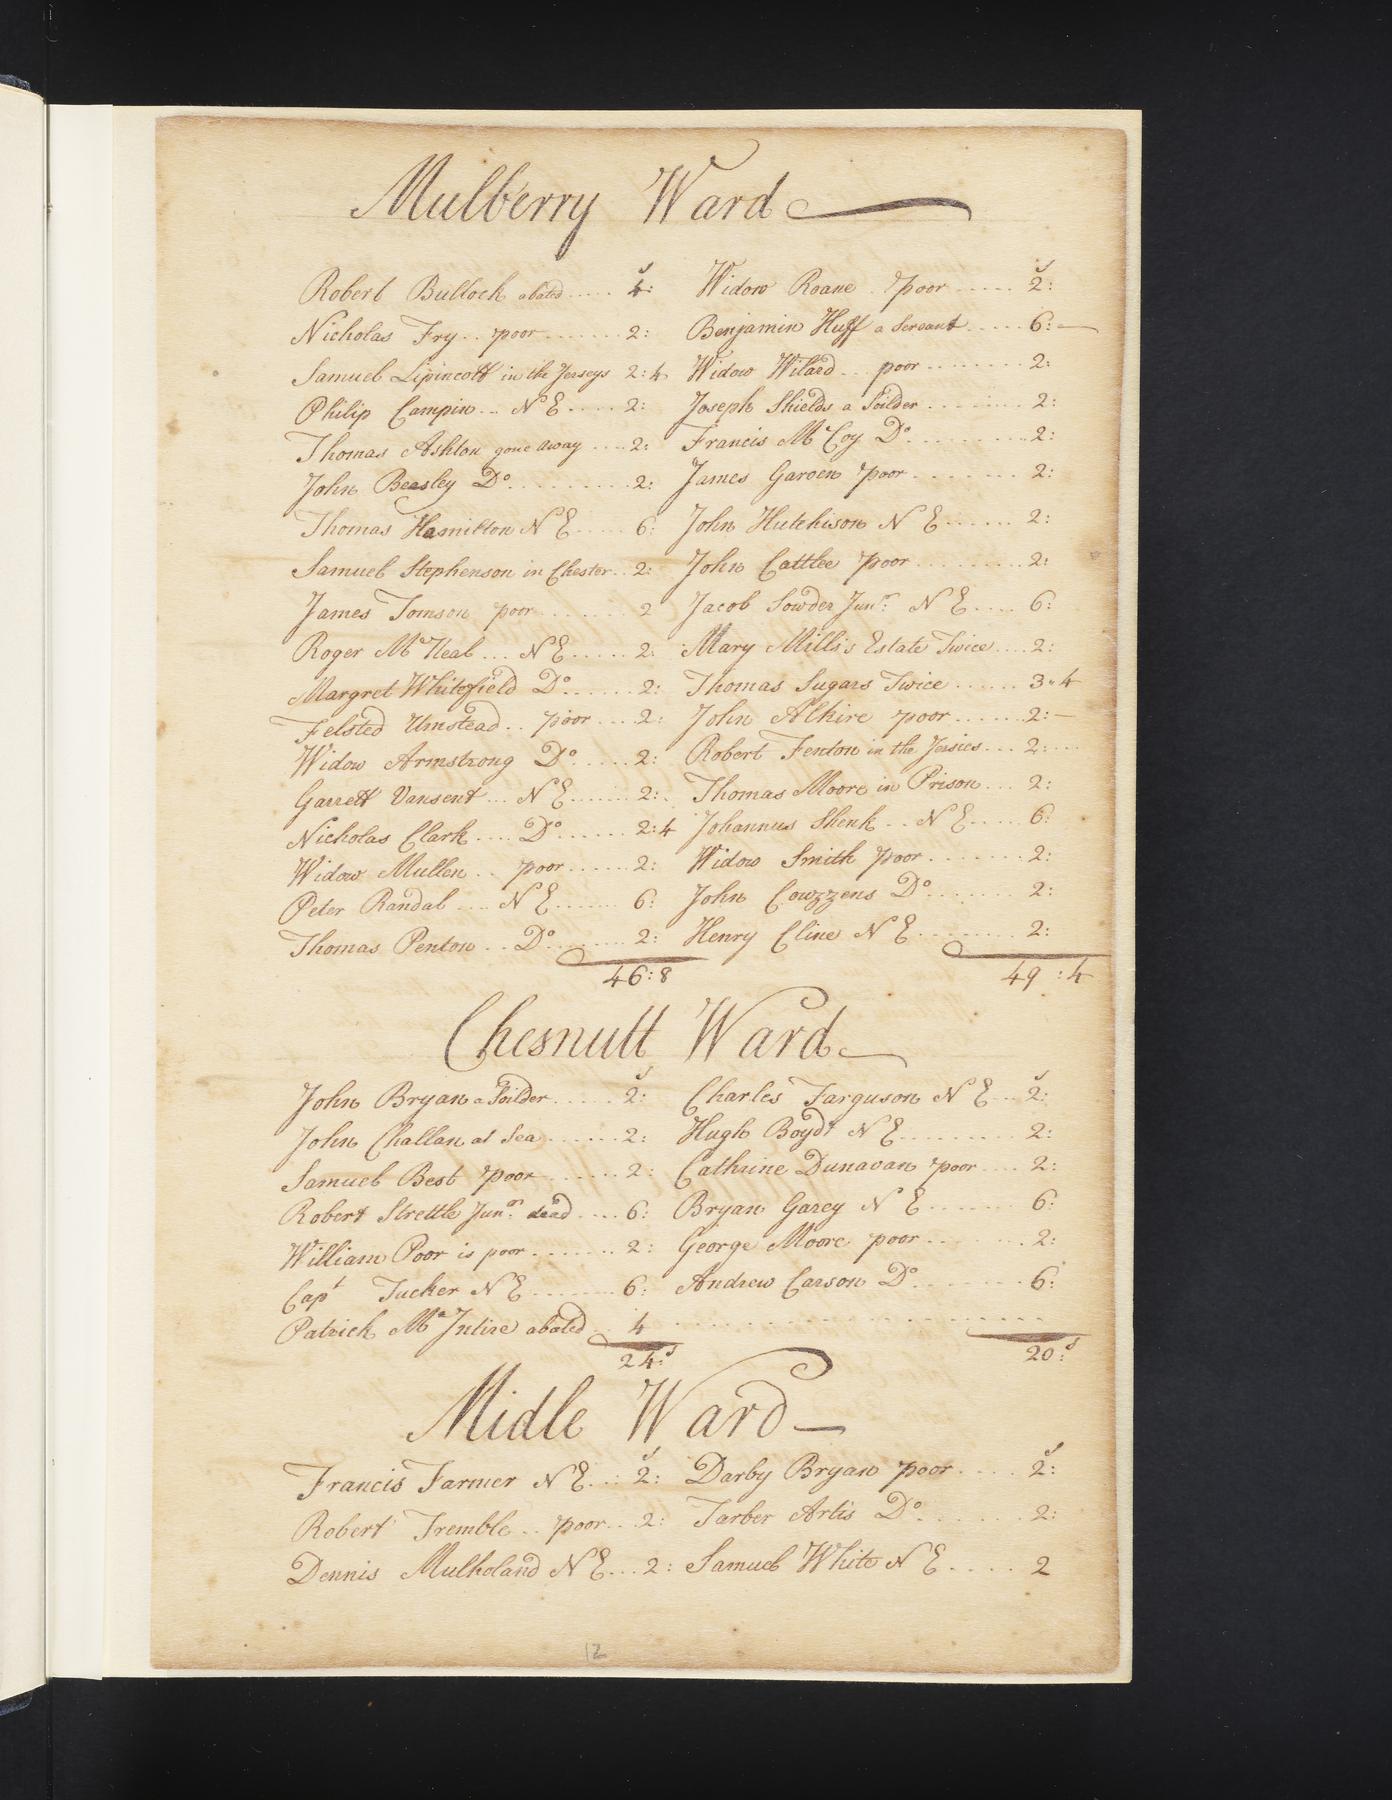 Mulberry Ward
Robert Bulloch abated ..... 4:
Nicholas Fry .. poor ....... 2:
Samuel Lipincott in the Jerseys 2:4
Philip Campin ... N E .... 2:
Thomas Ashton gone away .... 2:
John Beasley Do. ......... 2:
Thomas Hamilton N E ..... 6:
Samuel Stephenson in Chester .. 2:
James Tomson poor ....... 2
Roger Mc Neal ... N E ..... 2:
Margret Whitefield Do. ...... 2:
Felsted Umstead .. poor .... 2:
Widow Armstrong Do. ..... 2:
Garrett Vansent ... N E ...... 2:
Nicholas Clark .... Do. ...... 2:4
Widow Mullen .. poor ...... 2:
Peter Randal .... N E ...... 6:
Thomas Penton .. Do. ....... 2:
46:8
s
Widow Roane . poor ..... 2:
Benjamin Huff a Servant ..... 6:—
Widow Wilard ... poor ........ 2:
Joseph Shields a Soilder ......... 2:
Francis Mc Coy Do. ......... 2:
James Garden poor ........ 2:
John Hutchison N E ...... 2:
John Cattlee poor ......... 2:
Jacob Sowder Junr. N E .... 6:
Mary Mills's Estate Twice .... 2:
Thomas Sugars Twice ...... 3"4
John Alhire poor ...... 2:—
Robert Fenton in the Jersies ... 2:
Thomas Moore in Prison ... 2:
Johannus Shenk .. N E ..... 6:
Widow Smith poor ....... 2:
John Cowzzens Do. ....... 2:
Henry Cline N E ......... 2:
49:4
Chesnutt Ward
John Bryan a Soilder ..... 2:
John Challan at Sea ...... 2:
Samuel Best poor ...... 2:
Robert Strettle Junr. dead .... 6:
William Poor is poor ....... 2:
Capt Tucker N E ........ 6:
Patrick Mc Intire abated .. 4
24:s
Charles Farguson N E ... 2:
Hugh Boyd N E ......... 2:
Cathrine Dunavan poor .... 2:
Bryan Garey N E ....... 6:
George Moore poor ........ 2:
Andrew Carson Do. ....... 6:
20:s
Midle Ward
Francis Farmer N E ... 2:
Robert Tremble .. poor .. 2:
Dennis Mulholand N E ... 2:
Darby Bryan poor .... 2:
Tarber Artis Do. ...... 2:
Samuel White N E ..... 2
12